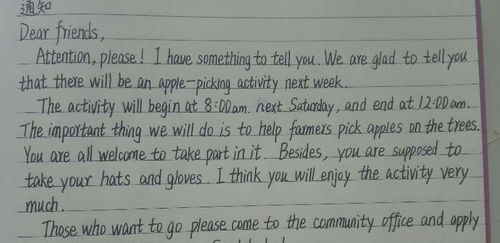 通知
Dear friends,
Attention, please! I have something to tell you. We are glad to tell you
that there will be an apple-picking activity next week.
The activity will begin at 8:00am. next Saturday, and end at 12:00am.
The important thing we will do is to help farmers pick apples on the trees.
You are all welcome to take part in it. Besides, you are supposed to
take your hats and gloves. I think you will enjoy the activity very
much.
Those who want to go please come to the community office and apply